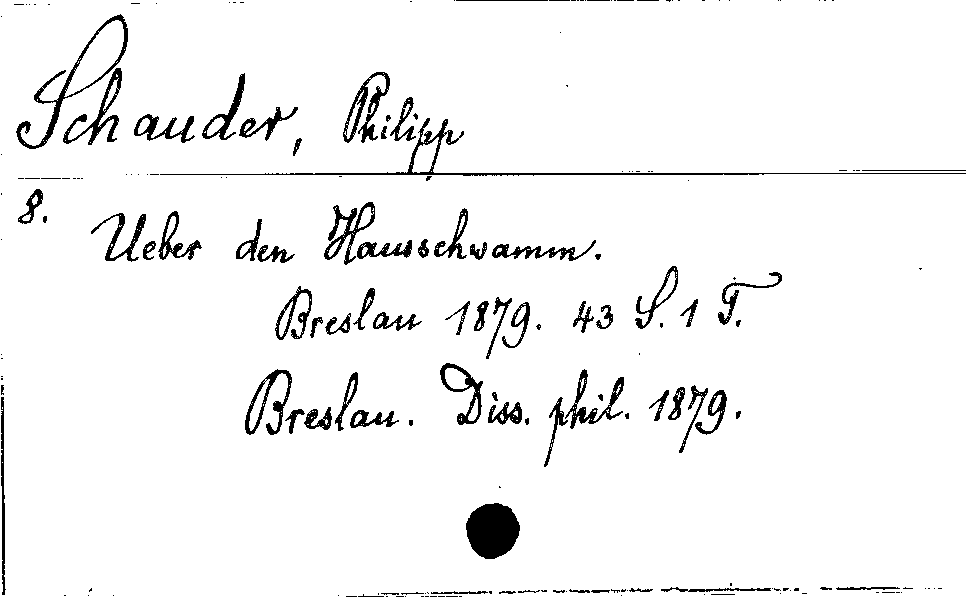 Schauder, Philipp
8.
Ueber den Hausschwamm.
Breslau 1879. 43 S. 1 T.
Breslau. Diss. phil. 1879.